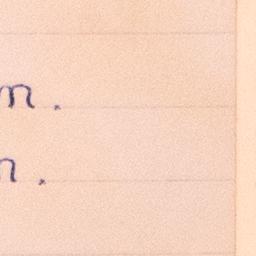 m.
n.